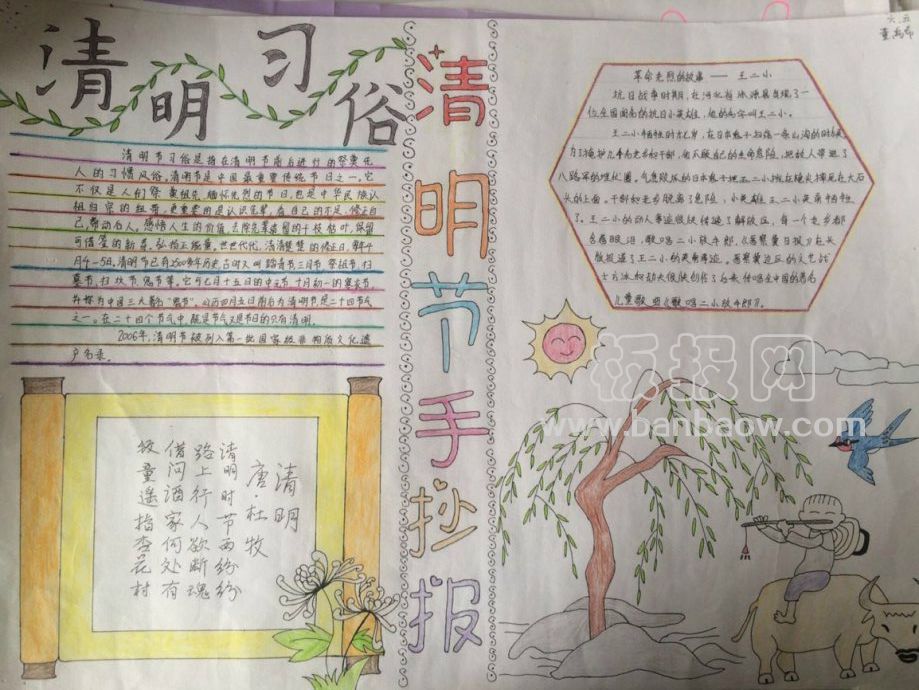 清明习俗
清明节习俗是指在清明节前后进行的祭奠先
人的习惯风俗。清明节是中国最重要传统节日之一。它
不仅是人们祭奠祖先、缅怀先烈的节日,也是中华民族认
祖归宗的纽带。更重要的是认识笔筆,看自己的不足,修正自
己,带动后人。感悟人生的价值,去除先辈希留的十枝枯叶,保留
可借鉴的新春。弘扬正能量,世世代代,清清楚楚的修正日,每年
4月4-5日。清明节已有2500多年历史,古时又叫踏青节、三月节、祭祖节、扫
墓节、扫坟节、鬼节等。它与七月十五日的中元节、十月初一的寒衣节
并称为中国三大著名"鬼节"。公历四月五日前后为清明节,是二十四节气
之一。在二十四个节气中,既是节气又是节日的只有清明。
2006年,清明节被列入第一批国家级非物质文化遗
产名录。
清明
唐·杜牧
清明时节雨纷纷
路上行人欲断魂
借问酒家何处有
牧童遥指杏花村
清明节手抄报
六.五
董
革命先烈的故事——王二小
抗日战争时期,在河北省涞源县出现了一
位全国闻名的抗日小英雄,他的名字叫王二小。
王二小牺牲时才九岁,在日本鬼子扫荡一条山沟的时候,
为了掩护几千名老乡和干部,他不顾自己的生命危险,把敌人带进了
八路军的埋伏圈。气急败坏的日本鬼子把王二小挑在枪尖摔死在大石
头的上面。干部和老乡脱离了危险,小英雄王二小英勇牺牲
了。王二小的动人事迹很快传遍了解放区,每一个老乡都
含着眼泪,歌唱二小放牛郎。《晋察冀日报》在头
版报道了王二小的英勇事迹。晋察冀边区的文艺战
士方冰和劫夫很快创作了后来传唱至中国的著名
儿童歌曲《歌唱二小放牛郎》。
板报网
www.banbaow.com